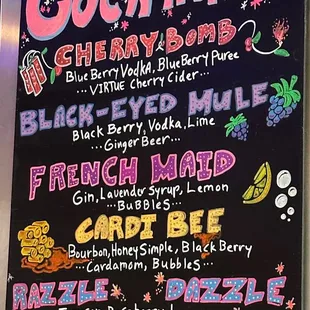 CHERRY BOMB
BlueBerry Vodka, BlueBerry Puree
...VIRTUE Cherry Cider...
BLACK-EYED MULE
Black Berry, Vodka, Lime
...Ginger Beer...
FRENCH MAID
Gin, Lavender Syrup, Lemon
...BUBBLES...
CARDI BEE
Bourbon, Honey Simple, Black Berry
...Cardamom, Bubbles...
RAZZLE DAZZLE